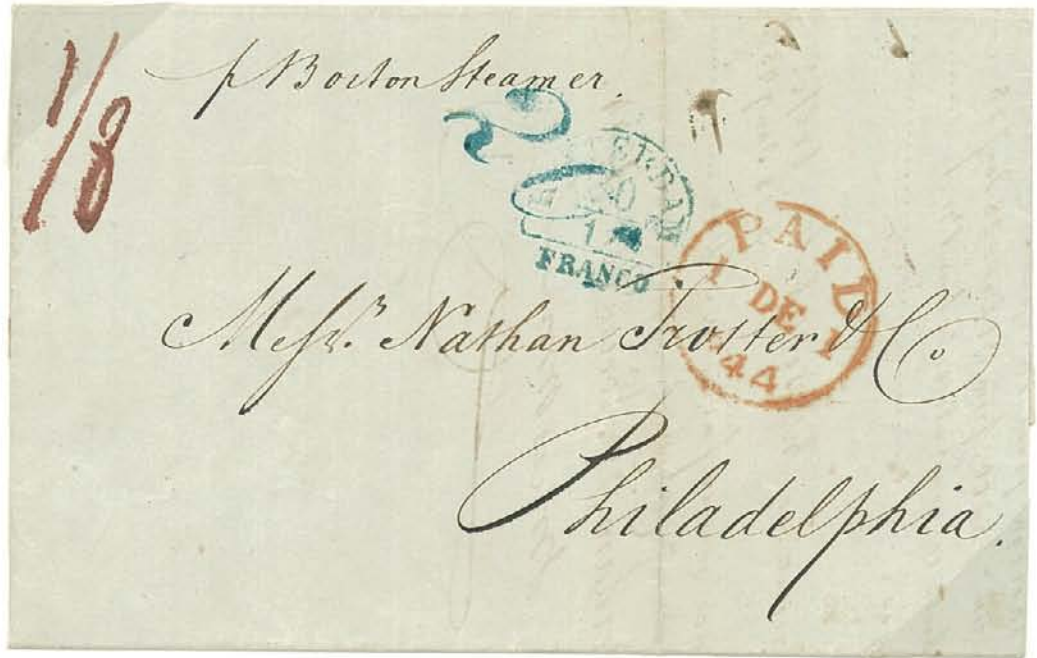 1/8
p Boston Steamer.
FRANCO
PAID
1 DE 1
44
Messrs. Nathan Trotter & Co
Philadelphia.